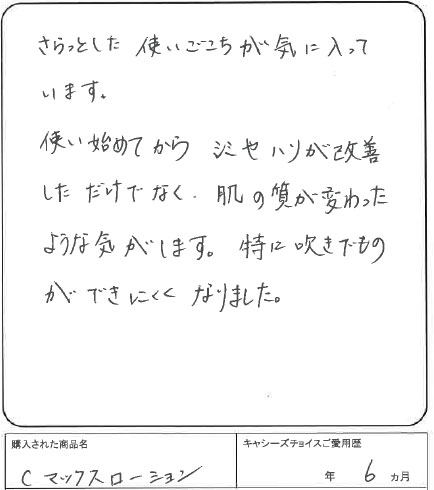 さらっとした 使いごこちが気に入って
います。
使い始めてから シミやハリが改善
しただけでなく、肌の質が変わった
ような気がします。特に吹きでもの
ができにくくなりました。
購入された商品名
Cマックスローション
キャシーズチョイスご愛用歴
年 6 カ月